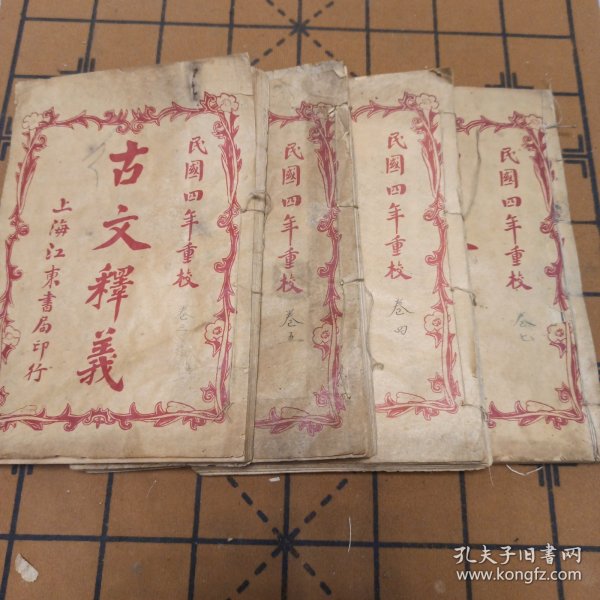 民國四年重校
古文釋義
上海江東書局印行
卷二
民國四年重校
卷五
民國四年重校
卷四
民國四年重校
卷七
孔夫子旧书网
www.kongfz.com